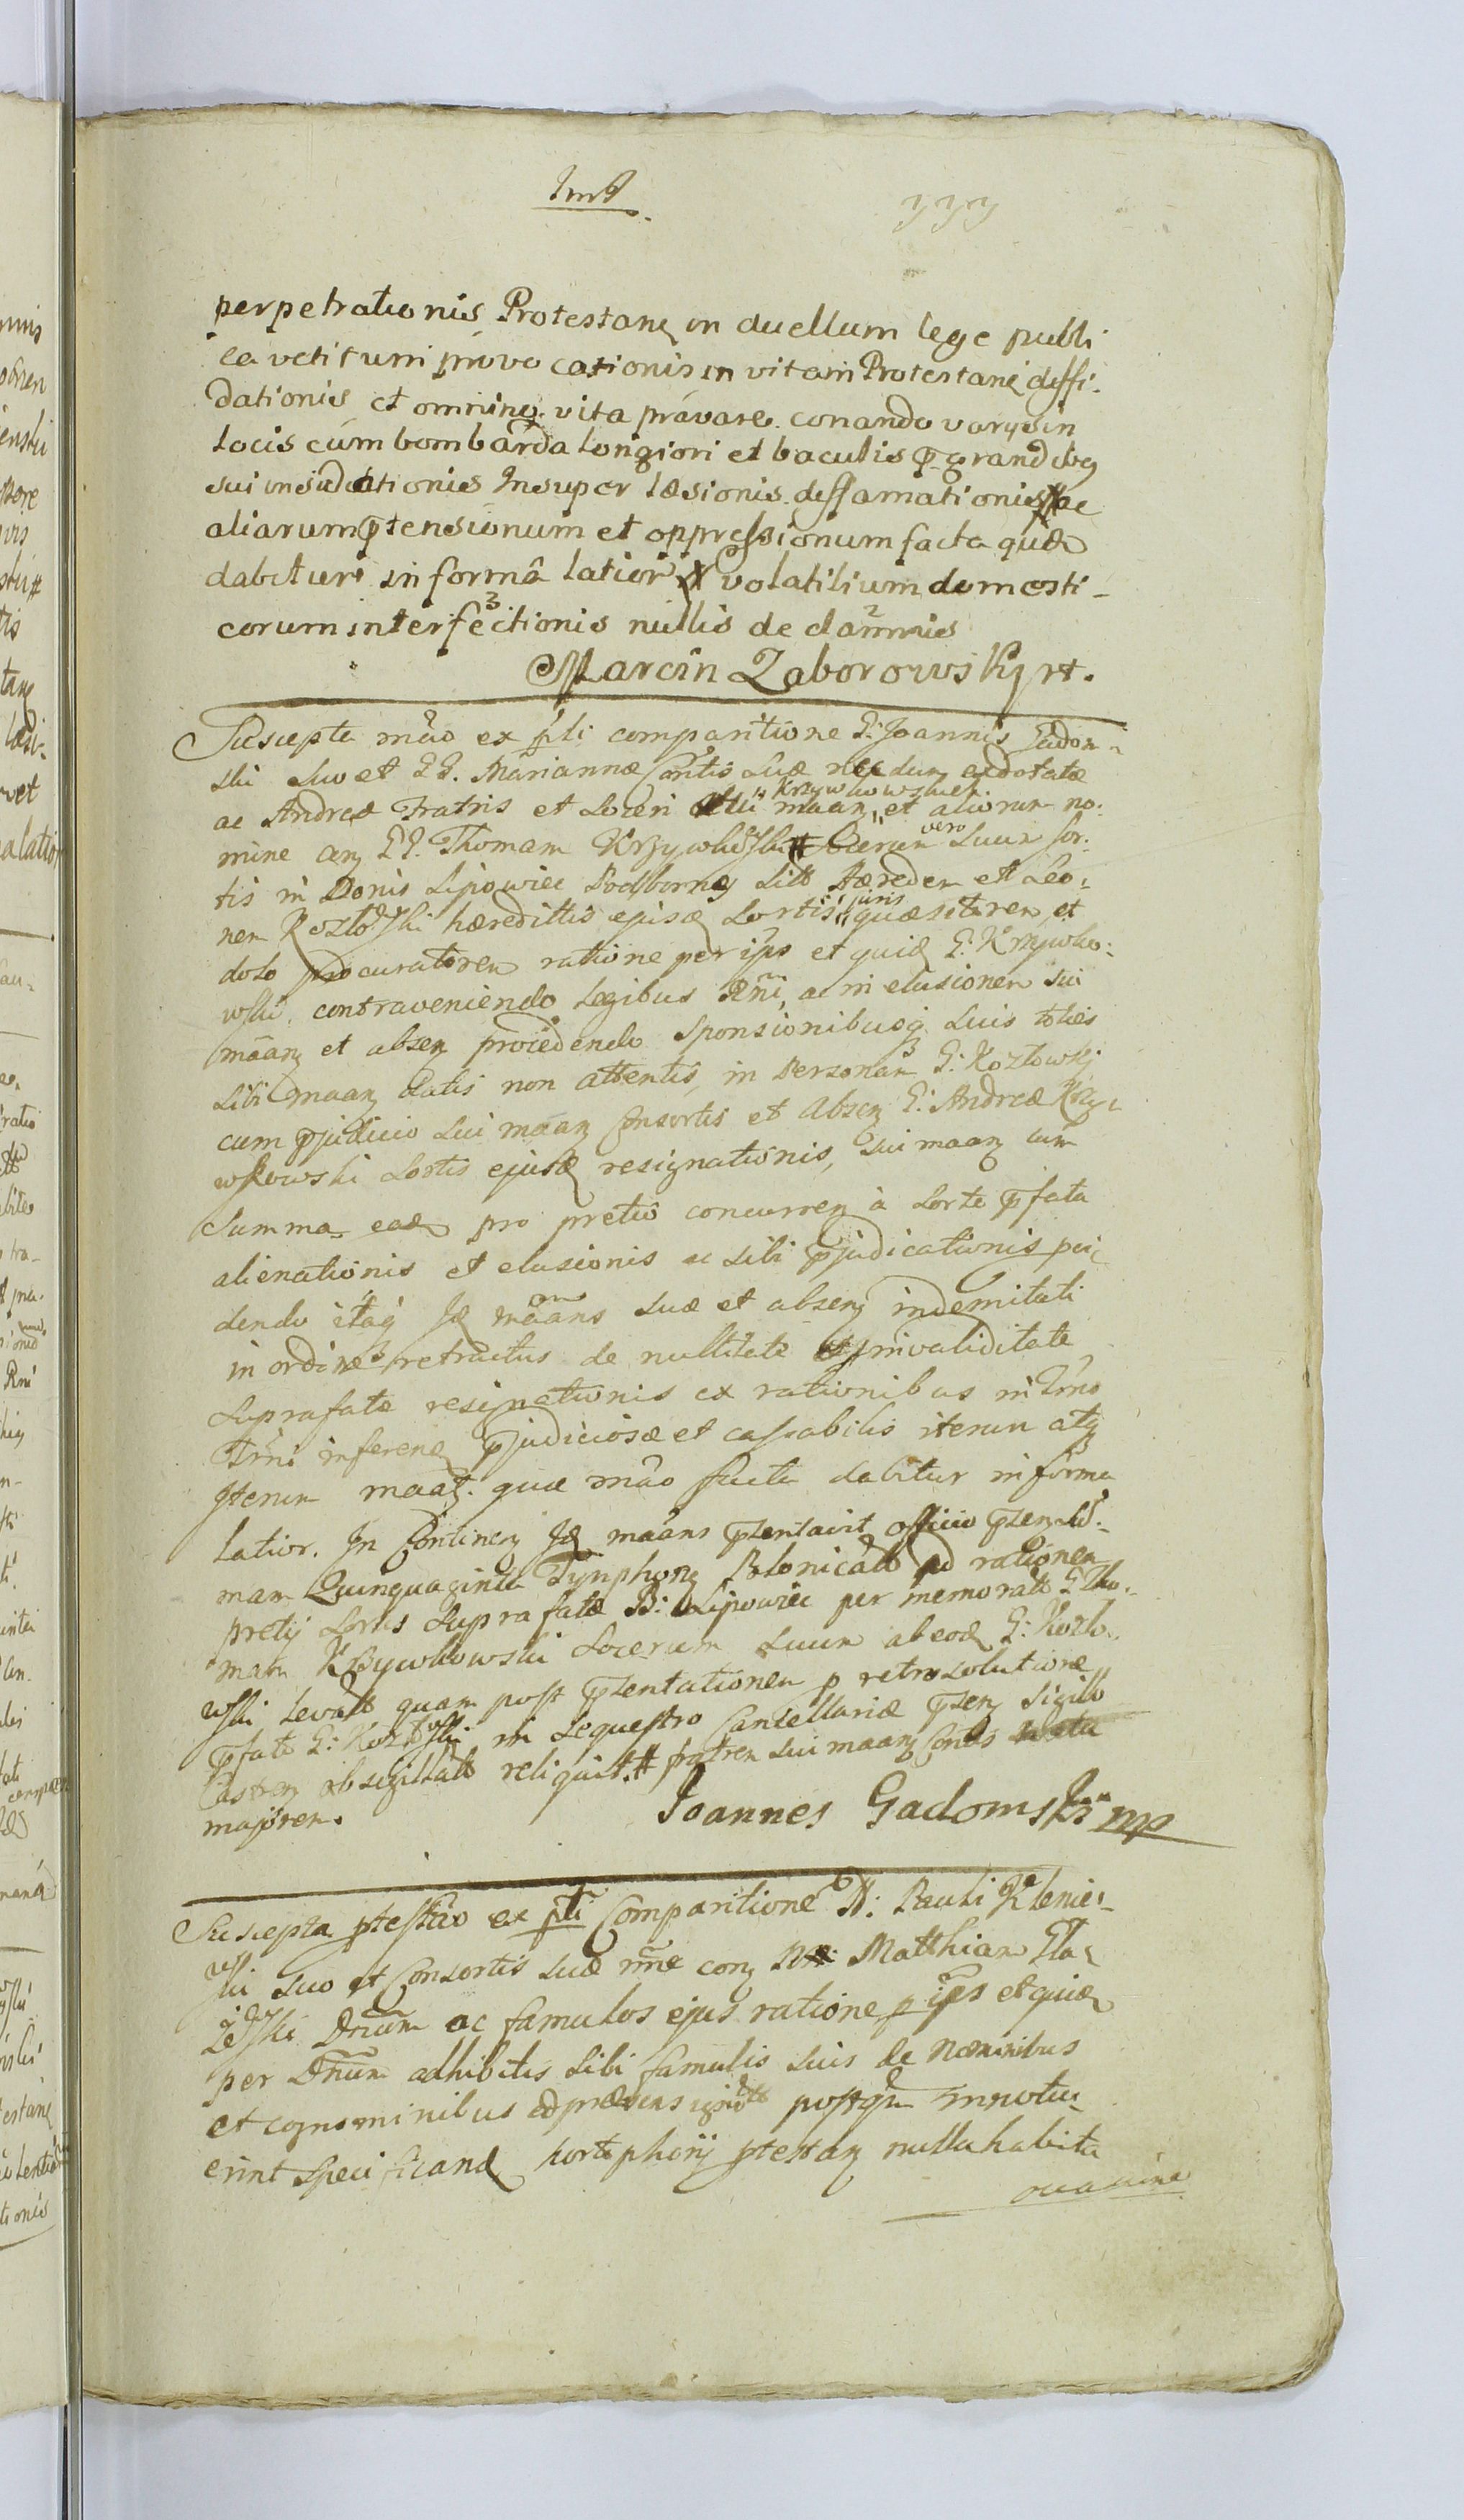 perpetrationis Protestanz in duellum lege publi
ca vetitum provocationis in vitam Protestanz diffi-
dationis et omnino vita privare conando varys in
locis cum bombarda longiori et baculis grandibz
sui insidiationis Insuper læsionis deffamationis ac
aliarum ptensionum et oppressionum facta quæ
dabitur in forma latiori volatilium domesti-
corum interfectionis nullis de damnis
Marcin Zaborowski
Suscepta mão ex psli comparitione G: Joannis Gadom-
ski suo et GG. Mariannæ Contis suæ necdum exdotatæ
ac Andreæ Fratris et Soceri sui Krzywkowskich maanz et aliorum no-
mine conz GG. Thomam Krzywkowski Socerum vero suum sor-
tis in Bonis Lipowiec Podborny sitt Hæredem et Leo-
nem Kozłowski hæredittis ejusd sortis juris quæsitorem et
dolo procuratorem ratione per ips et quia G: Krzywko-
wski contraveniendo Legibus Rñi, ac in elusionem sui
mãanz et absenz procedendo Sponsionibusq suis toties
sibi maanz datis non attentis, in Personam G: Kozłowski
cum pjudicio sui mãanz Consortis et Absenz G: Andreæ Krzy-
wkowski sortis ejusd resignationis, sui maanz cum
Summa eadem pro pretio concurrenz à sorte pfata
alienationis et elusionis ac sibi pjudicationis
dendo itaq Id mãans suæ et absenz indemnitati
in ordine retractus de nullitate invaliditate
suprafatæ resignationis ex rationibus in Trño
Trñi inferenz pjudiciosæ et cassabilis iterum atq
Iterum maat. quæ mão facta dabitur in forma
latior. In Continen Id mãans pzentavit officio pzen
mam Quinquaginta Tynphonz Polonicalt ad rationem
pretij sortis suprafatæ B: Lipowiec per memoratt G Tho-
mam Krzywkowski Socerum suum ab eod G: Kozło-
wski levatt quam post pzentationem p retrosolutione
pfato G: Kozłowski in sequestro Cancellariæ pzen Sigillo
Castren obsigillatt reliquit. # fratrem sui maanz Contis natu
majorem.
Joannes Gadomski mp
Suscepta ptestão ex psli Comparitione N: Pauli Klenie-
wski suo et Consortis suæ nñe conz Matthiam Gła-
żewski Dnum ac famulos ejus ratione p ips et quia
per Dnum adhibitis sibi famulis suis de Nominibus
et cognominibus ad præsens ignott postqm innotu-
erint specificand ptestan nulla habita